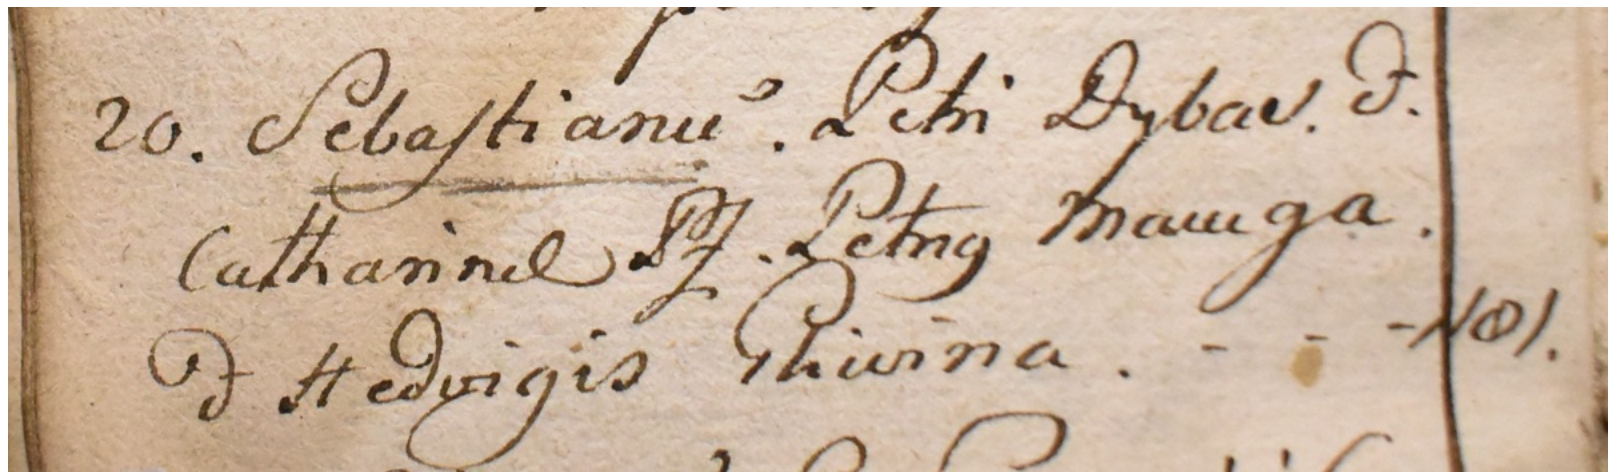 20. Sebastianus. Petri Dybas. &.
Catharinae PP. Petrus Mauuga.
& Hedvigis - - - 181.